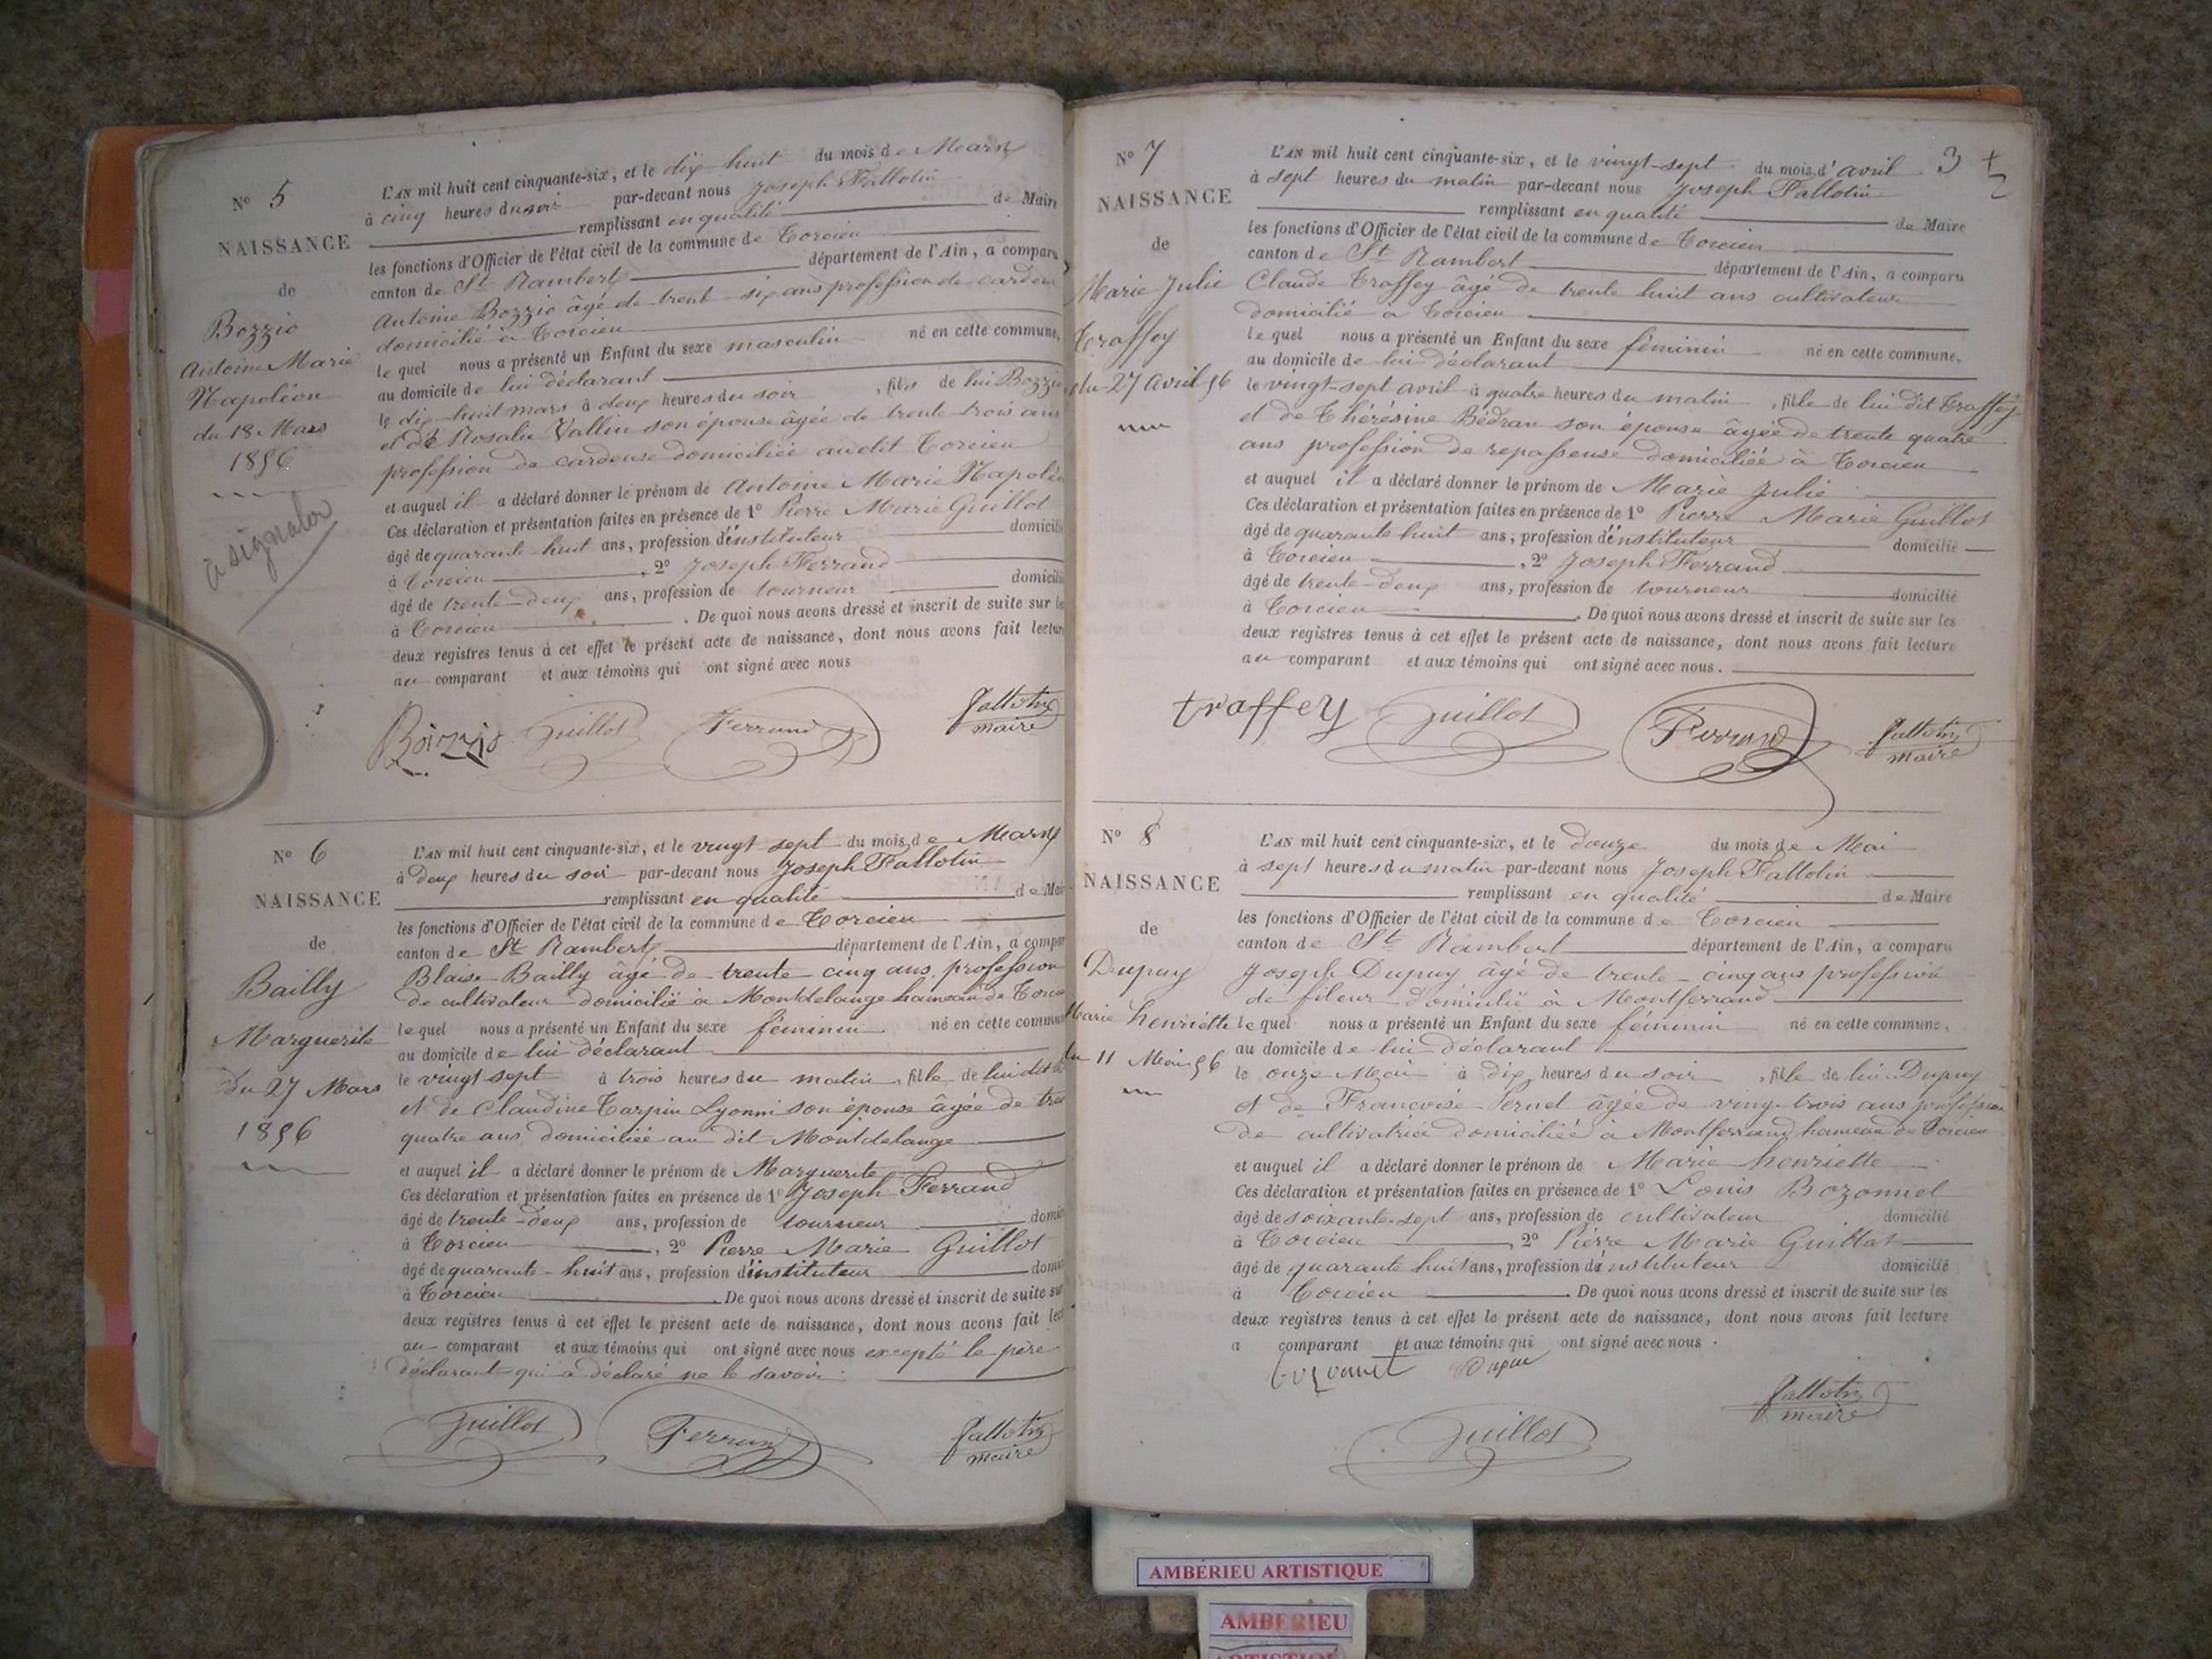 N° 5
NAISSANCE
de
Bozzio
Antoine Marie
Napoléon
du 18 Mars
1856
à signaler
L'AN mil huit cent cinquante-six, et le dix-huit du mois de Mars
à cinq heures du soir par-devant nous Joseph Fallotin
remplissant en qualité de Maire
les fonctions d'Officier de l'état civil de la commune de Torcieu
canton de St Rambert département de l'Ain, a comparu
Antoine Bozzio âgé de trente-six ans profession de cardeur
domicilié à Torcieu
lequel nous a présenté un Enfant du sexe masculin né en cette commune,
au domicile de lui déclarant
le dix-huit mars à deux heures du soir, fils de lui Bozzio
et de Rosalie Vallin son épouse âgée de trente trois ans
profession de cardeuse domiciliée audit Torcieu
et auquel il a déclaré donner le prénom de Antoine Marie Napoléo
Ces déclaration et présentation faites en présence de 1° Pierre Marie Guillot
âgé de quarante-huit ans, profession d'instituteur domicilié
à Torcieu, 2° Joseph Ferrand
âgé de trente-deux ans, profession de tourneur domicilié
à Torcieu. De quoi nous avons dressé et inscrit de suite sur les
deux registres tenus à cet effet le présent acte de naissance, dont nous avons fait lecture
au comparant et aux témoins qui ont signé avec nous
Boizzio Guillot Ferrand Fallotin
maire
N° 6
NAISSANCE
de
Bailly
Marguerite
du 27 Mars
1856
L'AN mil huit cent cinquante-six, et le vingt sept du mois de Mars
à deux heures du soir par-devant nous Joseph Fallotin
remplissant en qualité de Mair
les fonctions d'Officier de l'état civil de la commune de Torcieu
canton de St Rambert département de l'Ain, a compar
Blaise Bailly âgé de trente-cinq ans, profession
de cultivateur domicilié à Montdelange hameau de Torcieu
lequel nous a présenté un Enfant du sexe féminin né en cette commun
au domicile de lui déclarant
le vingt sept à trois heures du matin, fille de lui dit
et de Claudine Tarpin Lyonni son épouse âgée de tren
quatre ans domiciliée au dit Montdelange
et auquel il a déclaré donner le prénom de Marguerite
Ces déclaration et présentation faites en présence de 1° Joseph Ferrand
âgé de trente-deux ans, profession de tourneur domic
à Torcieu, 2° Pierre Marie Guillot
âgé de quarante-huit ans, profession d'instituteur domic
à Torcieu. De quoi nous avons dressé et inscrit de suite sur
deux registres tenus à cet effet le présent acte de naissance, dont nous avons fait lect
au comparant et aux témoins qui ont signé avec nous excepté le père
déclarant qui a déclaré ne le savoir.
Guillot Ferrand Fallotin
maire
3
N° 7
NAISSANCE
de
Marie Julie
Traffey
du 27 Avril 56
L'AN mil huit cent cinquante-six, et le vingt-sept du mois d'avril
à sept heures du matin par-devant nous Joseph Fallotin
remplissant en qualité de Maire
les fonctions d'Officier de l'état civil de la commune de Torcieu
canton de St Rambert département de l'Ain, a comparu
Claude Traffey âgé de trente huit ans cultivateur
domicilié à Torcieu
lequel nous a présenté un Enfant du sexe féminin né en cette commune,
au domicile de lui déclarant
le vingt-sept avril à quatre heures du matin, fille de lui dit Traffey
et de Thérésine Bédran son épouse âgée de trente quatre
ans profession de repasseuse domiciliée à Torcieu
et auquel il a déclaré donner le prénom de Marie Julie
Ces déclaration et présentation faites en présence de 1° Pierre Marie Guillot
âgé de quarante huit ans, profession d'instituteur domicilié
à Torcieu, 2° Joseph Ferrand
âgé de trente-deux ans, profession de tourneur domicilié
à Torcieu. De quoi nous avons dressé et inscrit de suite sur les
deux registres tenus à cet effet le présent acte de naissance, dont nous avons fait lecture
au comparant et aux témoins qui ont signé avec nous.
traffey Guillot Ferrand Fallotin
maire
N° 8
NAISSANCE
de
Dupuy
Marie henriette
du 11 Mai 56
L'AN mil huit cent cinquante-six, et le douze du mois de Mai
à sept heures du matin par-devant nous Joseph Fallotin
remplissant en qualité de Maire
les fonctions d'Officier de l'état civil de la commune de Torcieu
canton de St Rambert département de l'Ain, a comparu
Joseph Dupuy âgé de trente-cinq ans profession
de fileur domicilié à Montferrand
lequel nous a présenté un Enfant du sexe féminin né en cette commune,
au domicile de lui déclarant
le onze Mai à dix heures du soir, fille de lui Dupuy
et de Francoise Pernet âgée de vingt-trois ans profession
de cultivatrice domiciliée à Montferrand hameau de Torcieu
et auquel il a déclaré donner le prénom de Marie henriette
Ces déclaration et présentation faites en présence de 1° Louis Bozonnet
âgé de soixante-sept ans, profession de cultivateur domicilié
à Torcieu, 2° Pierre Marie Guillot
âgé de quarante huit ans, profession d'instituteur domicilié
à Torcieu. De quoi nous avons dressé et inscrit de suite sur les
deux registres tenus à cet effet le présent acte de naissance, dont nous avons fait lecture
a comparant et aux témoins qui ont signé avec nous.
Fallotin
maire
Guillot
AMBÉRIEU ARTISTIQUE
AMBERIEU
ARTISTIQUE